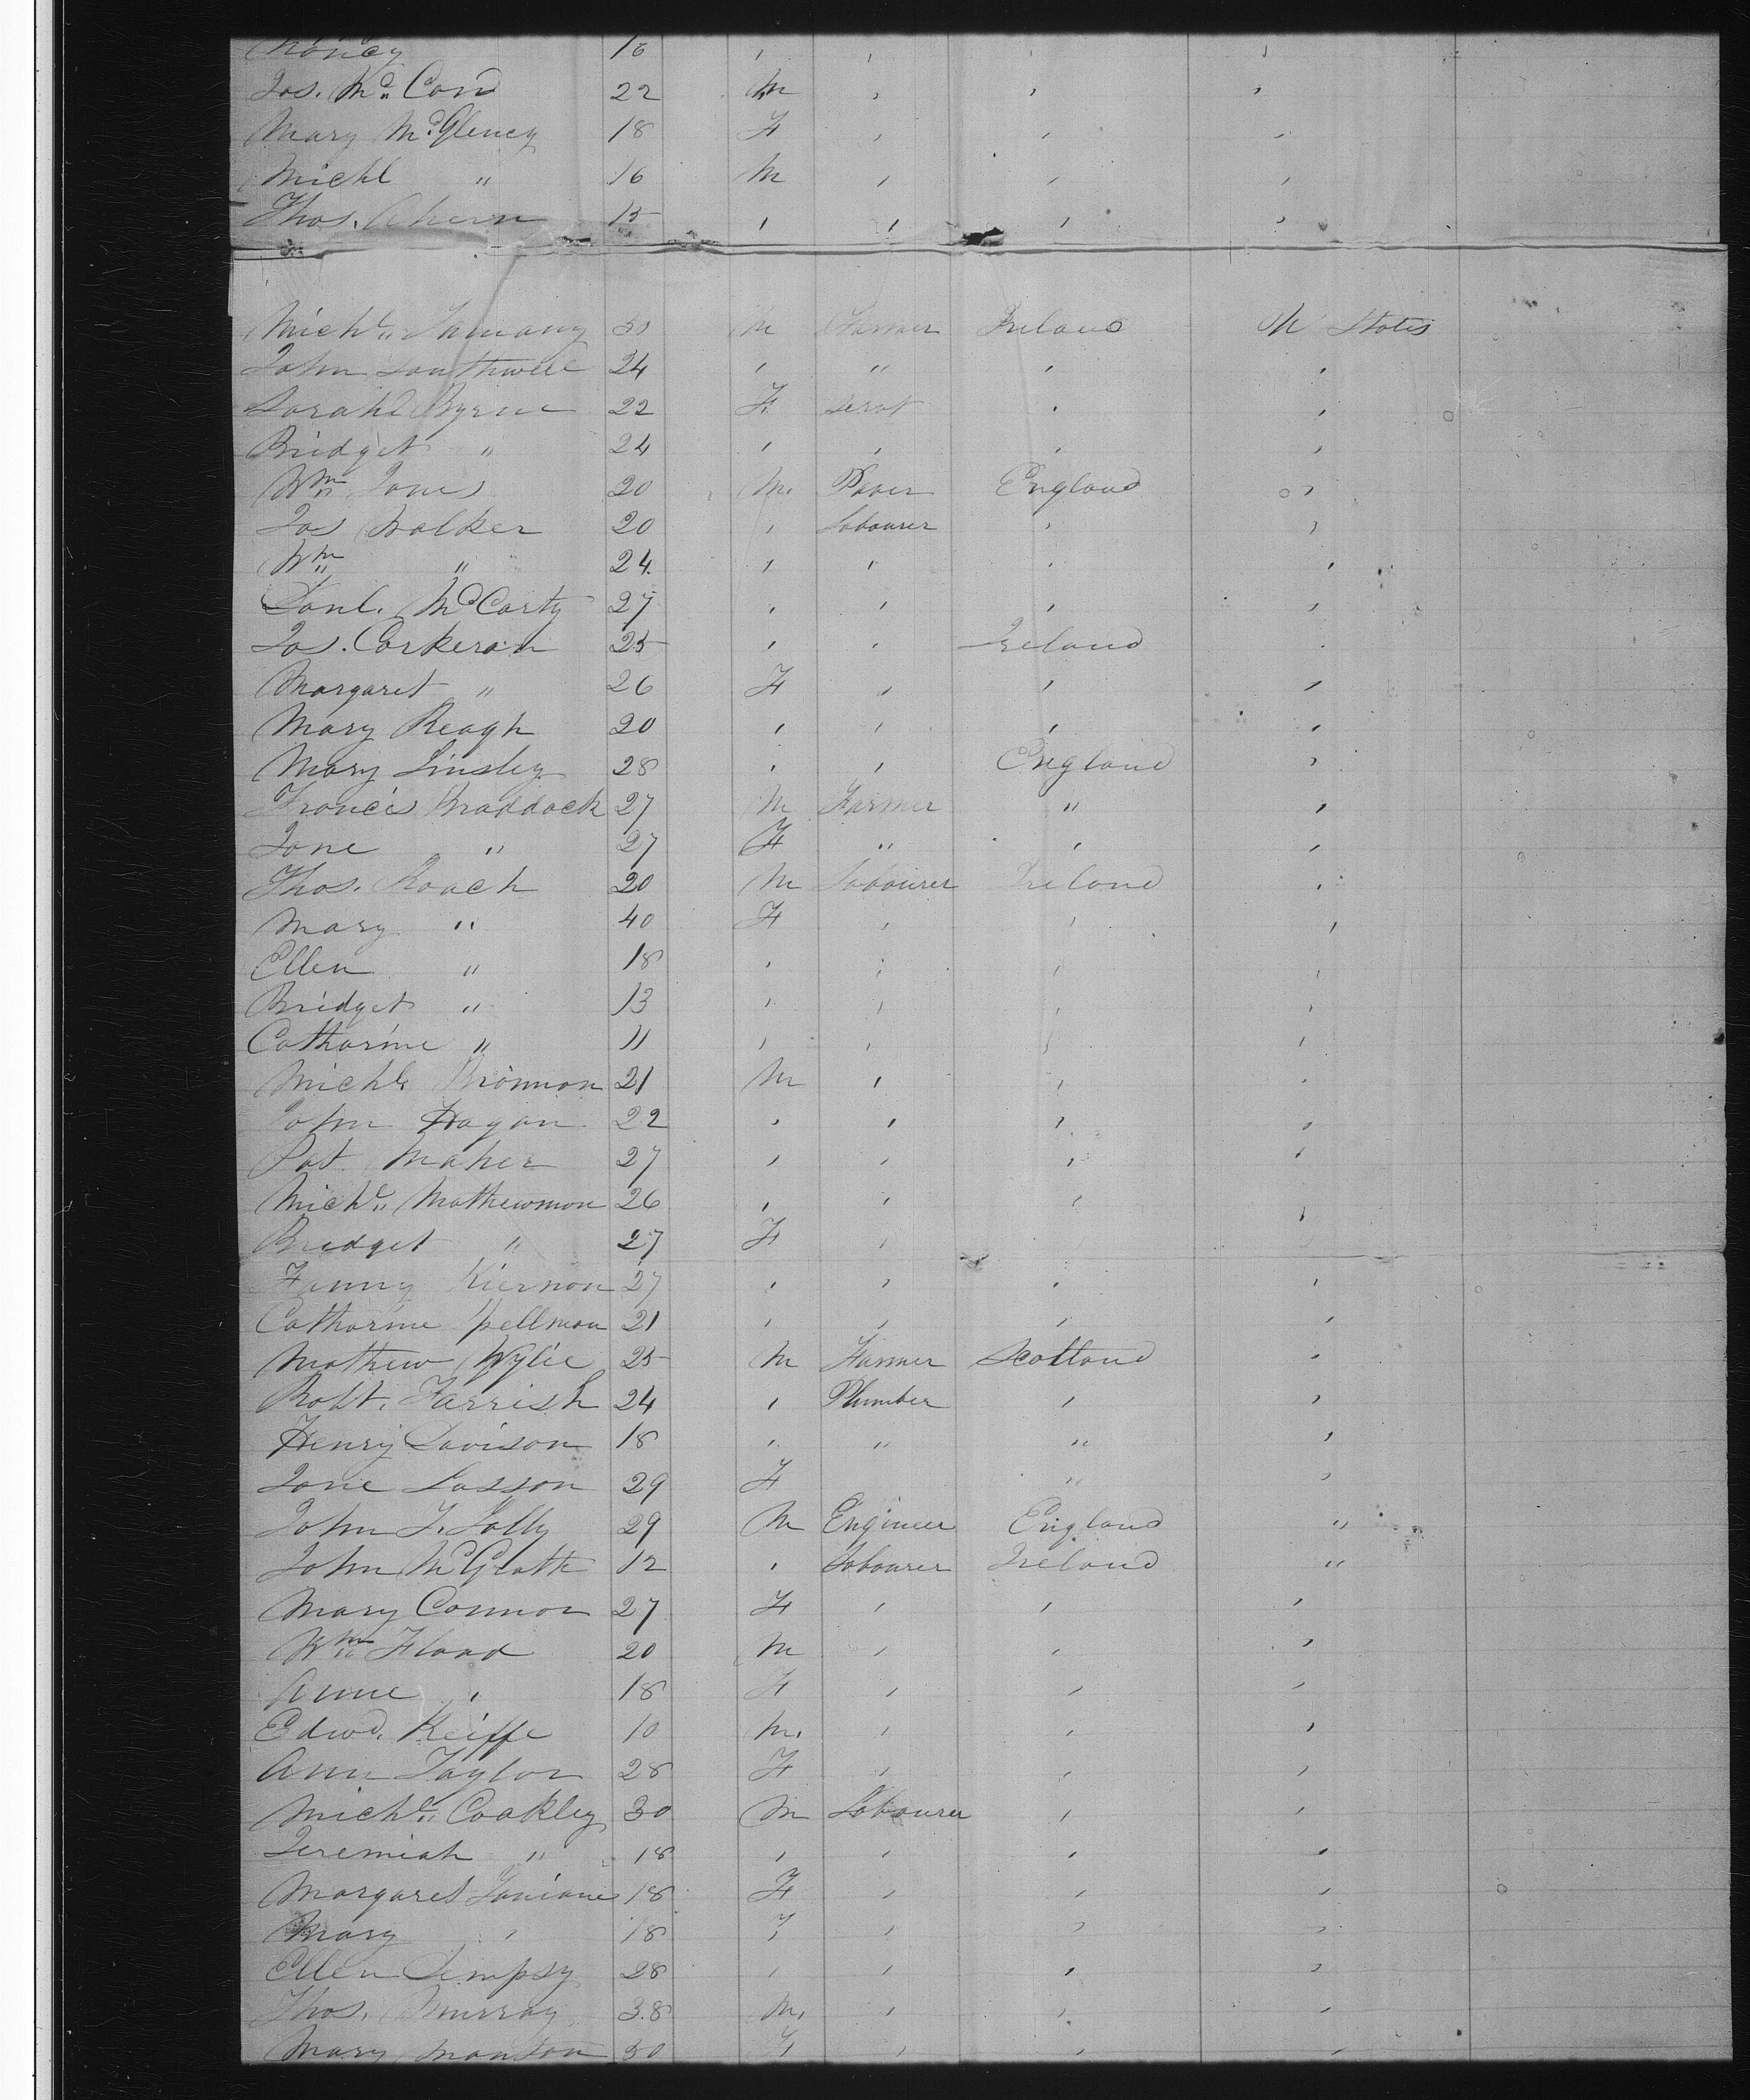 Nancy 16 , , , ,
Jas. McCord 22 M , , ,
Mary McGlency 18 F , , ,
Michl " 16 M , , ,
Thos. Ahern 15 , , , ,
Michl. 30 M Farmer Ireland U States
John Southwell 24 , " , ,
Sarah Byrne 22 F. Servt , ,
Bridget " 24 , , , ,
Wm Jones 20 M. England ,
Jas Walker 20 , Labourer , ,
Wm " 24. , , , ,
Danl. McCarty 27 , , , ,
Jas. Corkeran 25 , , Ireland ,
Margaret " 26 F , , ,
Mary Reagh 20 , , , ,
Mary Linsley 28 , , England ,
Francis Braddock 27 M Farmer " ,
Jane " 27 F " , ,
Thos. Roach 20 M Labourer Ireland ,
Mary " 40 F , , ,
Ellen " 18 , , , ,
Bridget " 13 , , , ,
Catharine " 11 , , , ,
Michl. Brannan 21 M , , ,
John Hagan 22 , , , ,
Pat Maher 27 , , , ,
Michl. Mathewman 26 , , , ,
Bridget " 27 F , ,
Fanny Kiernan 27 , , , ,
Catharine Spellman 21 , , , ,
Mathew Wylie 25 M Farmer Scotland ,
Robt. Farrish 24 , Plumber , ,
Henry Davison 18 , " " ,
Jane Lasson 29 F " ,
John F. Jolly 29 M Engineer England "
John McGrath 12 , Labourer Ireland "
Mary Connor 27 F , , ,
Wm Flood 20 M , , ,
Anne , 18 F , , ,
Edwd. Keiffe 10 M. , , ,
Ann Taylor 28 F , , ,
Michl. Coakley 30 M Labourer , ,
Jeremiah " 18 , , , ,
Margaret 18 F , , ,
Mary , 18 F , , ,
Ellen Dempsy 28 , , , ,
Thos. Murray 38 M. , , ,
Mary Manton 30 F , , ,